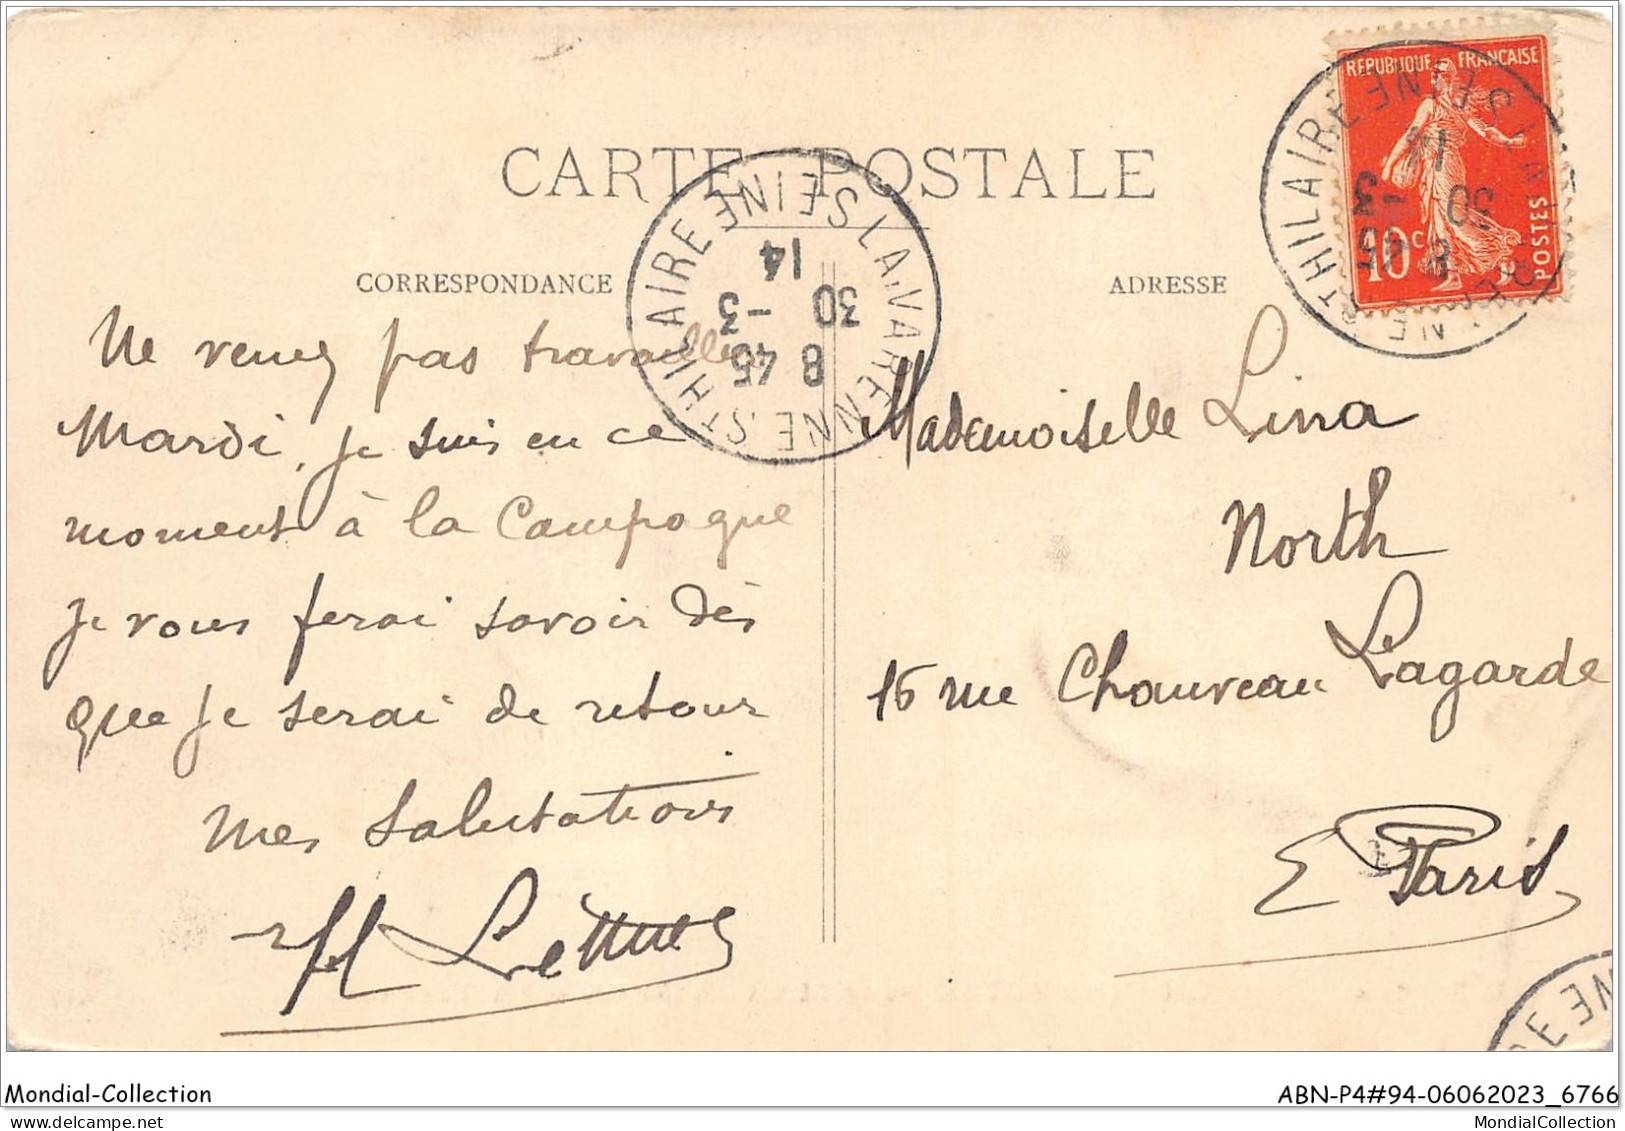 CARTE POSTALE
CORRESPONDANCE
ADRESSE
REPUBLIQUE FRANÇAISE
10c
POSTES
LA VARENNE ST HILAIRE SEINE
8 45
30 -3
14
LA VARENNE ST HILAIRE SEINE
8 45
30 -3
14
Ne venez pas travailler
Mardi, je suis en ce
moment à la Campagne
Je vous ferai savoir dès
que je serai de retour
Mes Salutations
Mademoiselle Lina
North
15 rue Chauveau Lagarde
E Paris
Mondial-Collection
ABN-P4#94-06062023_6766
MondialCollection